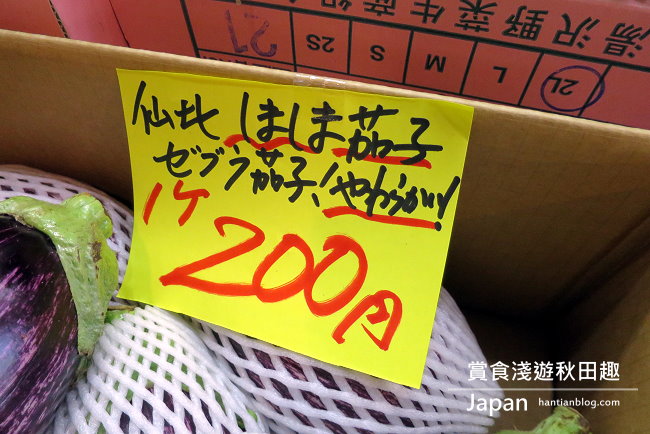 湯沢野菜生産組
2L
L
M
S
2S
21
仙北 しましま茄子
ゼブラ茄子!やわらかい!
1ケ
200円
賞食淺遊秋田趣
Japan hantianblog.com